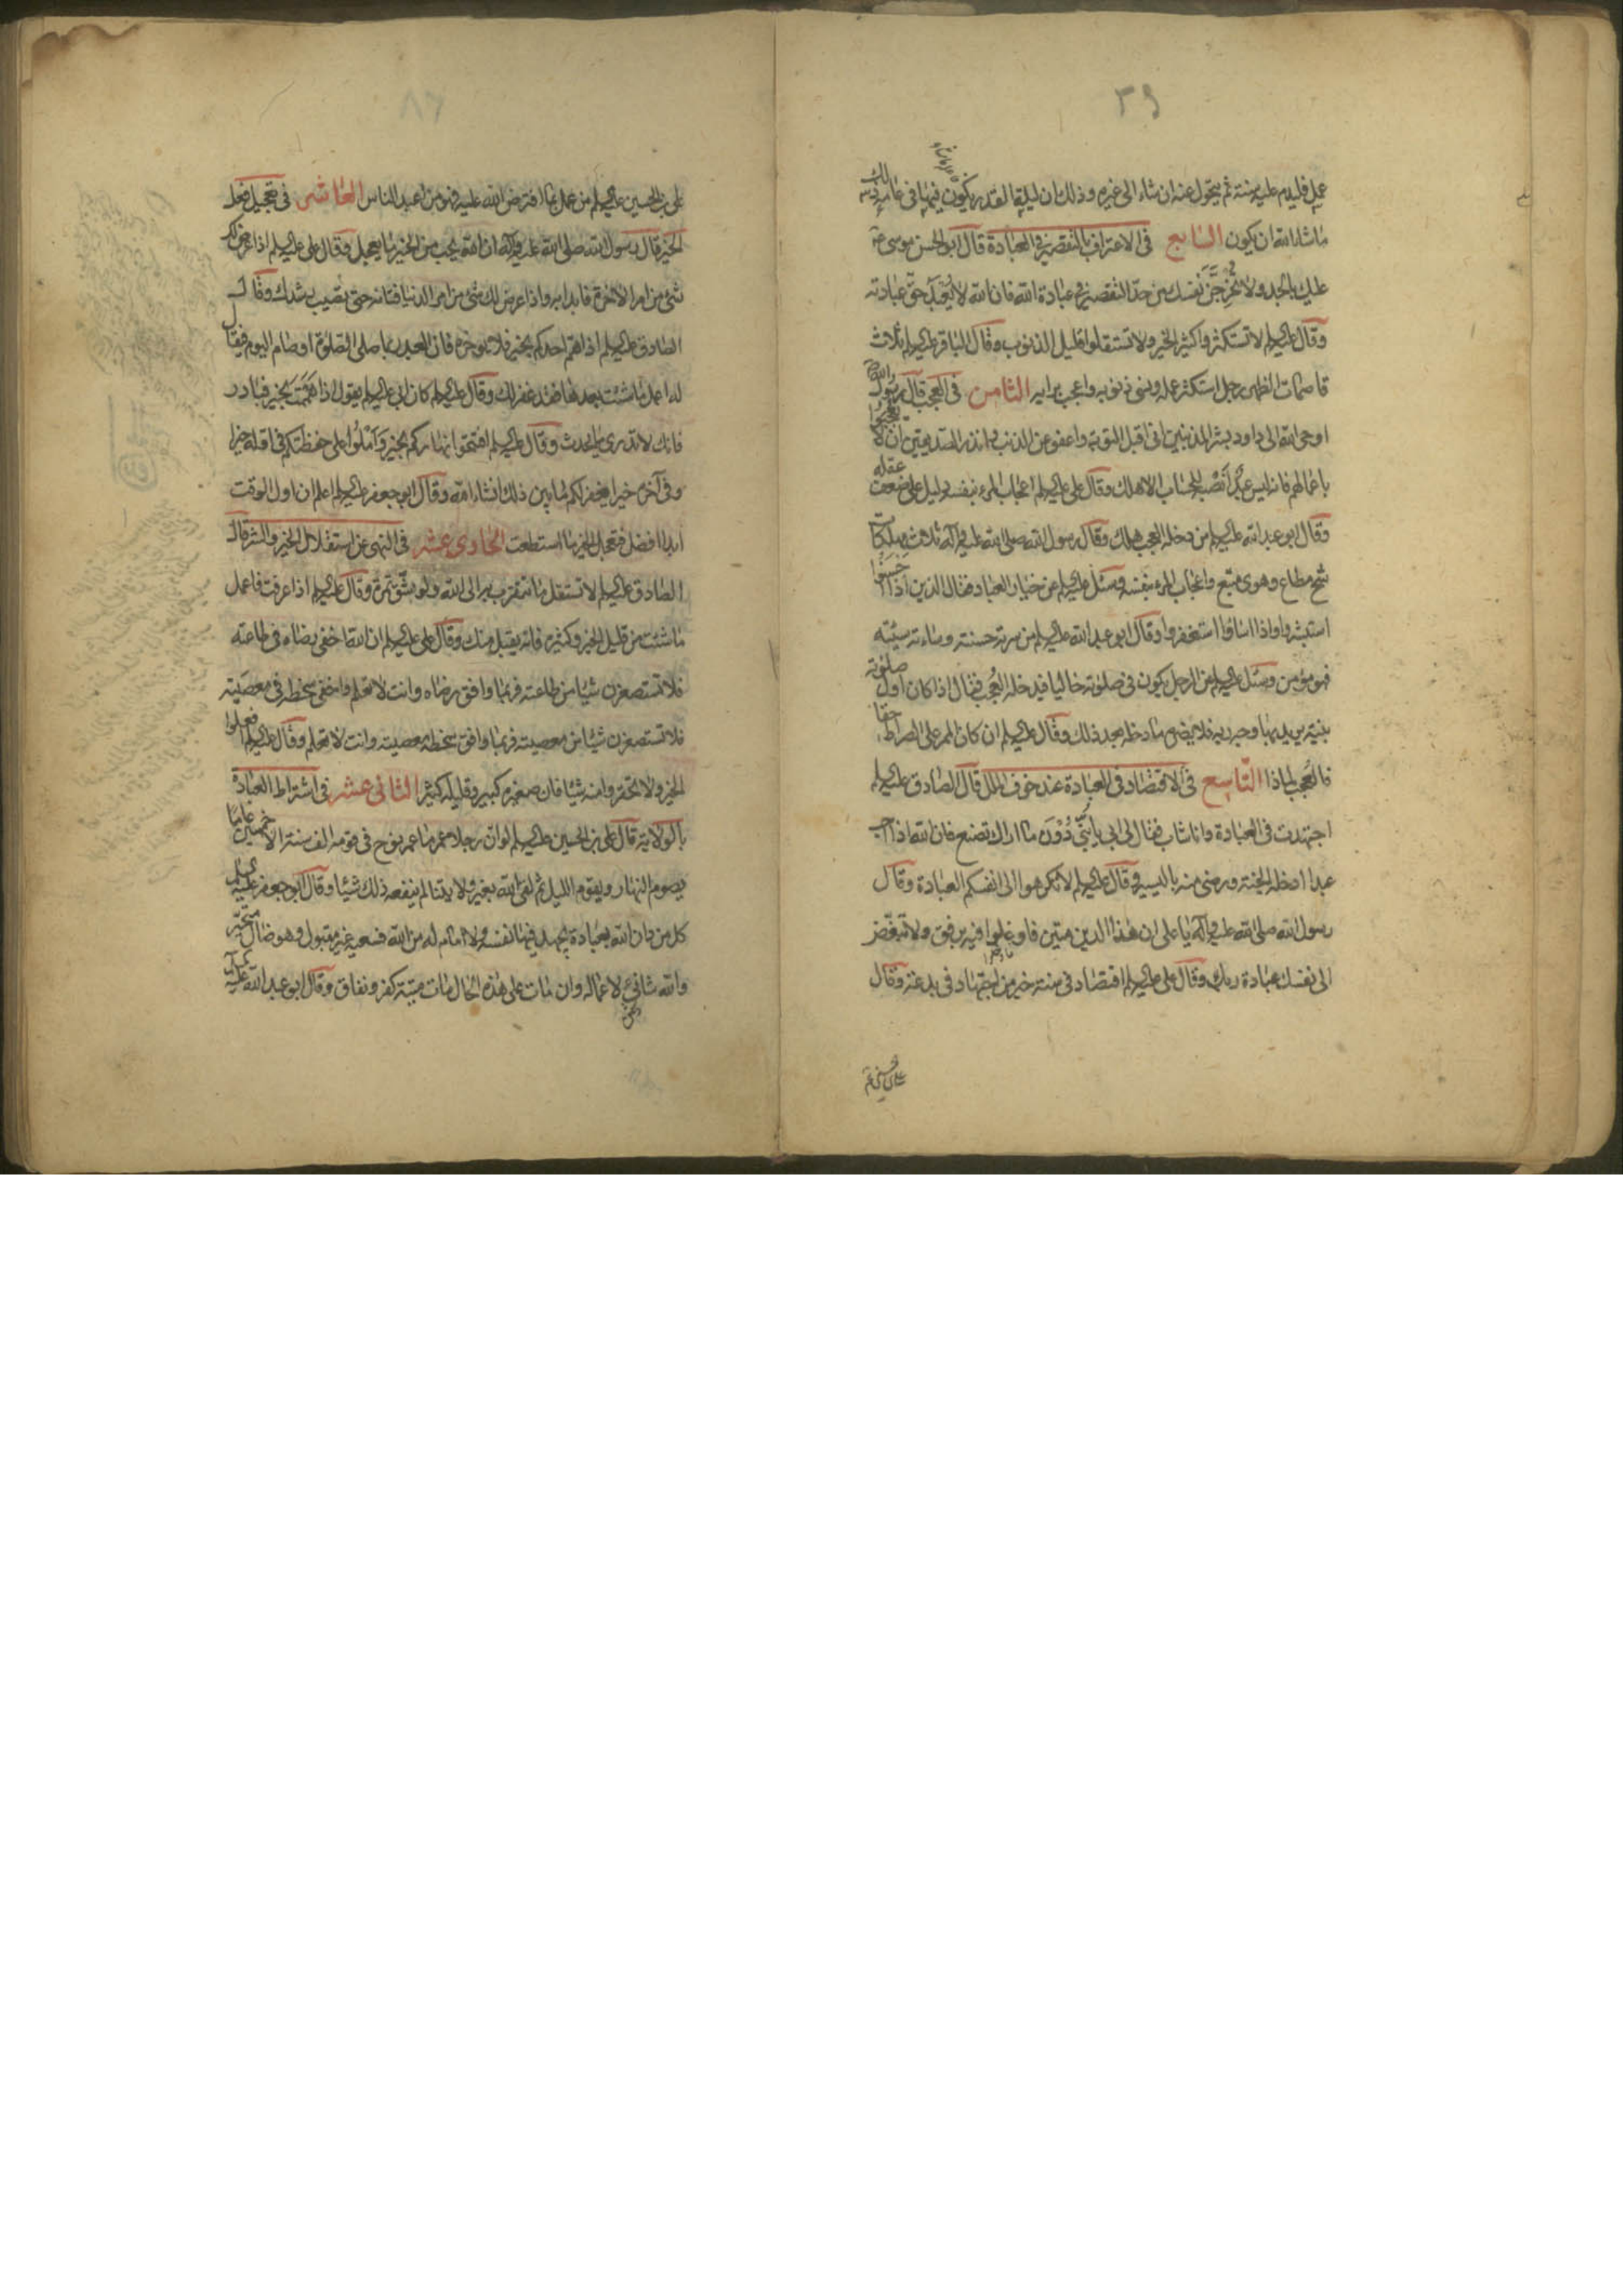 ٣٩
عمل فليدم عليه سنة ثم يتحول عنه ان شاء الى غيره وذلك ان ليلة القدر يكون فيها في عامه ذلك
ما شاء الله ان يكون السابع في الاعتراف بالتقصير في العبادة قال ابو الحسن موسى ع
عليك بالجد ولا تخرجن نفسك من حد التقصير في عبادة الله فان الله لا يعبد حق عبادته
وقال عليه السلم لا تستكثروا كثير الخير ولا تستقلوا قليل الذنوب وقال الباقر عليه السلم ثلاث
قاصمات الظهر رجل استكثر عمله ونسى ذنوبه واعجب برايه الثامن في العجب قال رسول الله
اوحى الله الى داود بشر المذنبين انى اقبل التوبة واعفو عن الذنب وانذر الصديقين ان لا يعجبوا
باعمالهم فانه ليس عبد اَنصبه للحساب الا هلك وقال على عليه السلم اعجاب المرء بنفسه دليل على ضعف عقله
وقال ابو عبد الله عليه السلم من دخله العجب هلك وقال رسول الله صلى الله عليه واله ثلاث مهلكات
شح مطاع وهوى متبع واعجاب المرء بنفسه وسئل عليه السلم عن خيار العباد فقال الذين اذا احسنوا
استبشروا واذا اساؤا استغفروا وقال ابو عبد الله عليه السلم من سرته حسنته وساءته سيئته
فهو مؤمن وسئل عليه السلم عن الرجل يكون في صلوته خاليا فيدخله العجب فقال اذا كان اول صلوته
بنية يريد بها وجه ربه فلا يضره ما دخله بعد ذلك وقال عليه السلم ان كان الممر على الصراط حقا
فالعجب لماذا التاسع في الاقتصاد في العبادة عند خوف الملل قال الصادق عليه السلم
اجتهدت في العبادة وانا شاب فقال لى ابى يا بنى دون ما اراك تصنع فان الله اذا احب
عبدا ادخله الجنة ورضى منه باليسير وقال عليه السلم لا تكرهوا الى انفسكم العبادة وقال
رسول الله صلى الله عليه واله يا على ان هذا الدين متين فاوغلوا فيه برفق ولا تبغض
الى نفسك عبادة ربك وقال على عليه السلم اقتصاد في سنة خير من اجتهاد في بدعة وقال
على بن الحسين عليه السلم من عمل بما افترض الله عليه فهو من اعبد الناس العاشر في تعجيل فعل
الخير قال رسول الله صلى الله عليه واله ان الله يحب من الخير ما يعجل وقال على عليه السلم اذا عرض لك
شىء من امر الاخرة فابدا به واذا عرض لك شىء من امر الدنيا فتانه حتى تصيب رشدك وقال
الصادق عليه السلم اذا هم احدكم بخير فلا يوخره فان العبد ربما صلى الصلوة او صام اليوم فيقال
له اعمل ما شئت بعدها فقد غفر لك وقال عليه السلم كان ابى عليه السلم يقول اذا هممت بخير فبادر
فانك لا تدرى ما يحدث وقال عليه السلم افتتحوا نهاركم بخير وَاَملُوا على حفظتكم في اوله خيرا
وفى آخره خيرا يغفر لكم ما بين ذلك انشاء الله وقال ابو جعفر عليه السلم اعلم ان اول الوقت
ابدا افضل فتعجل الخير ما استطعت الحادى عشر في النهى عن استقلال الخير والشر قال
الصادق عليه السلم لا تستقل ما تتقرب به الى الله ولو بشق تمرة وقال عليه السلم اذا عرفت فاعمل
ما شئت من قليل الخير وكثيره فانه يقبل منك وقال على عليه السلم ان الله اخفى رضاه في طاعته
فلا تستصغرن شيئا من طاعته فربما وافق رضاه وانت لا تعلم واخفى سخطه في معصيته
فلا تستصغرن شيئا من معصيته فربما وافق سخطه معصيته وانت لا تعلم وقال عليه السلم افعلوا
الخير ولا تحقروا منه شيئا فان صغيره كبير وقليله كثير الثانى عشر في اشتراط العبادة
بالولاية قال على بن الحسين عليه السلم لو ان رجلا عمر ما عمر نوح في قومه الف سنة الا خمسين عاما
يصوم النهار ويقوم الليل ثم لقى الله بغير ولايتنا لم ينفعه ذلك شيئا وقال ابو جعفر عليه السلم
كل من دان الله بعبادة يجهد فيها نفسه ولا امام له من الله فسعيه غير مقبول وهو ضال متحير
والله شانئ لاعماله وان مات على هذه الحال مات ميتة كفر ونفاق وقال ابو عبد الله عليه السلم